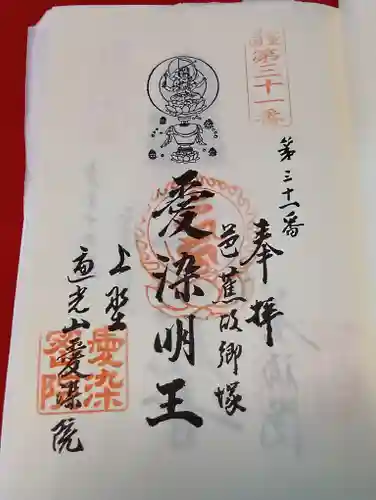 第三十一番
第三十一番
奉拝
芭蕉故郷塚
愛染明王
上野
遍光山愛染院
愛染
密院